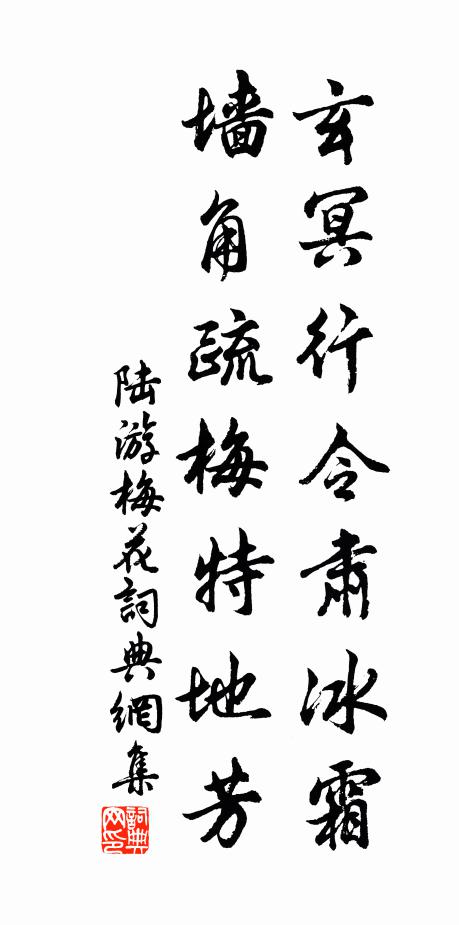 玄冥行令肃冰霜
墙角疏梅特地芳
陆游梅花詞典網集
詞典网印